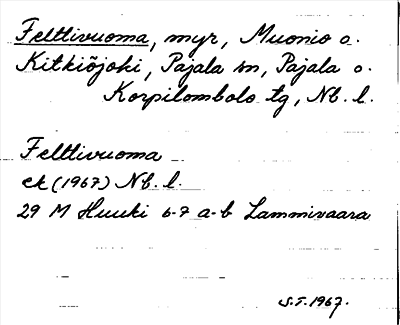 Felttivuoma, myr, Muonio o.
Kitkiöjoki, Pajala sn, Pajala o.
Korpilombolo tg, Nb. l.
Felttivuoma
ek (1967) Nb. l.
29 M Huuki 6-7 a-b Lamnivaara
S.F. 1967.